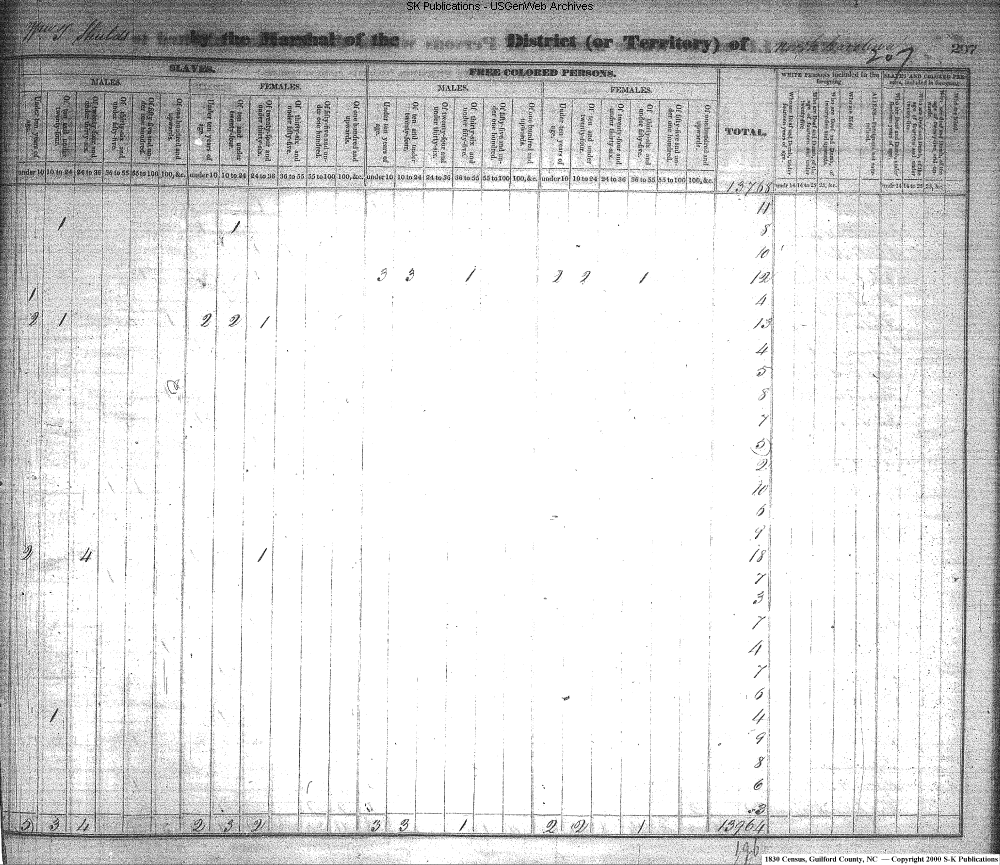 SK Publications - USGenWeb Archives
Wm. T. Shields by the Marshal of the District (or Territory) of North Carolina 297
207
SLAVES. FREE COLORED PERSONS.
MALES. FEMALES. MALES. FEMALES. TOTAL.
Under ten years of age. Of ten and under twenty-four. Of twenty-four and under thirty-six. Of thirty-six and under fifty-five. Of fifty-five and under one hundred. Of one hundred and upwards. Under ten years of age. Of ten and under twenty-four. Of twenty-four and under thirty-six. Of thirty-six and under fifty-five. Of fifty-five and under one hundred. Of one hundred and upwards. Under ten years of age. Of ten and under twenty-four. Of twenty-four and under thirty-six. Of thirty-six and under fifty-five. Of fifty-five and under one hundred. Of one hundred and upwards. Under ten years of age. Of ten and under twenty-four. Of twenty-four and under thirty-six. Of thirty-six and under fifty-five. Of fifty-five and under one hundred. Of one hundred and upwards.
under 10 10 to 24 24 to 36 36 to 55 55 to 100 100, &c. under 10 10 to 24 24 to 36 36 to 55 55 to 100 100, &c. under 10 10 to 24 24 to 36 36 to 55 55 to 100 100, &c. under 10 10 to 24 24 to 36 36 to 55 55 to 100 100, &c.
13768
11
1 1 8
10
3 3 1 2 2 1 12
1 4
2 1 2 2 1 13
4
5
8
7
5
2
10
6
9
2 4 1 18
7
3
7
4
7
6
1 4
9
8
6
2
5 3 4 2 3 2 3 3 1 2 2 1 13964
196
1830 Census, Guilford County, NC — Copyright 2000 S-K Publications